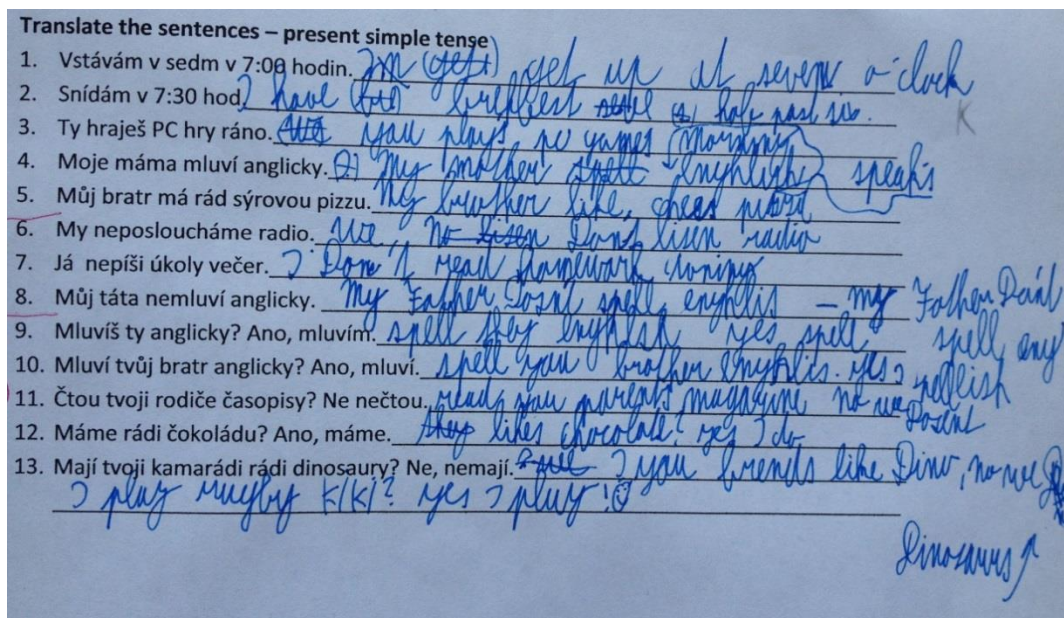 Translate the sentences – present simple tense
1. Vstávám v sedm v 7:00 hodin. get up at seven o'clock
2. Snídám v 7:30 hod. I have brekfest half past six.
K
3. Ty hraješ PC hry ráno. you plays pc games morning
4. Moje máma mluví anglicky. My mother speaks
5. Můj bratr má rád sýrovou pizzu. My brother like, chees
6. My neposloucháme radio. We, no lisen Dont lisen radio
7. Já nepíši úkoly večer. I Don't read
8. Můj táta nemluví anglicky. My Father Dosnt spell englis – my Father
9. Mluvíš ty anglicky? Ano, mluvím. spell they yes spell, spell eng
10. Mluví tvůj bratr anglicky? Ano, mluví. spell you brother yes
11. Čtou tvoji rodiče časopisy? Ne nečtou. read, you parents magazine no we Dosent
12. Máme rádi čokoládu? Ano, máme. they likes chocolate? yes I do
13. Mají tvoji kamarádi rádi dinosaury? Ne, nemají. you friends like Dino, no we
I play rugby yes I play
Dinosaurs